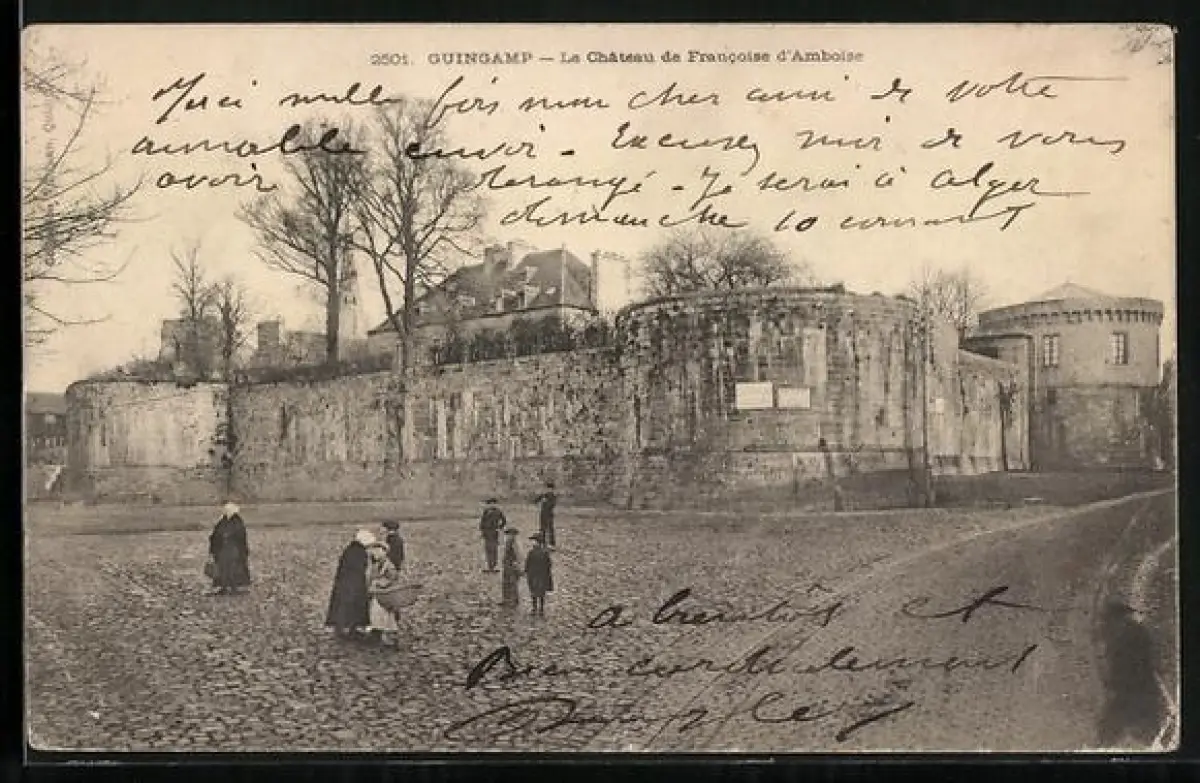 2501. GUINGAMP — Le Château de Françoise d'Amboise
Merci mille fois mon cher ami de votre
aimable envoi. Excusez moi de vous
avoir derangé. Je serai à Alger
dimanche 10 courant
a bientôt et
Bien cordialement